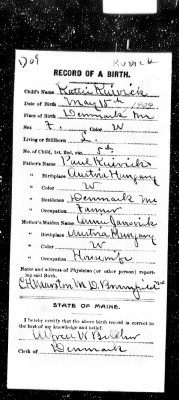 RECORD OF A BIRTH.
Child's Name Katie Kuivick
Date of Birth May 15th
Place of Birth Denmark Me
Sex F. Color W
Living or Stillborn L.
No. of Child, 1st, 2nd, etc. 5th
Father's Name Paul Kuivick
" Birthplace Austria Hungary
" Color W
" Residence Denmark Me
" Occupation Farmer
Mother's Maiden Name
" Birthplace Austria Hungary
" Color W
" Occupation Housewife
Name and address of Physician (or other person) reporting said Birth.
M.D.
STATE OF MAINE.
I hereby certify that the above birth record is correct to the best of my knowledge and belief.
Alfred W Belcher
Clerk of Denmark